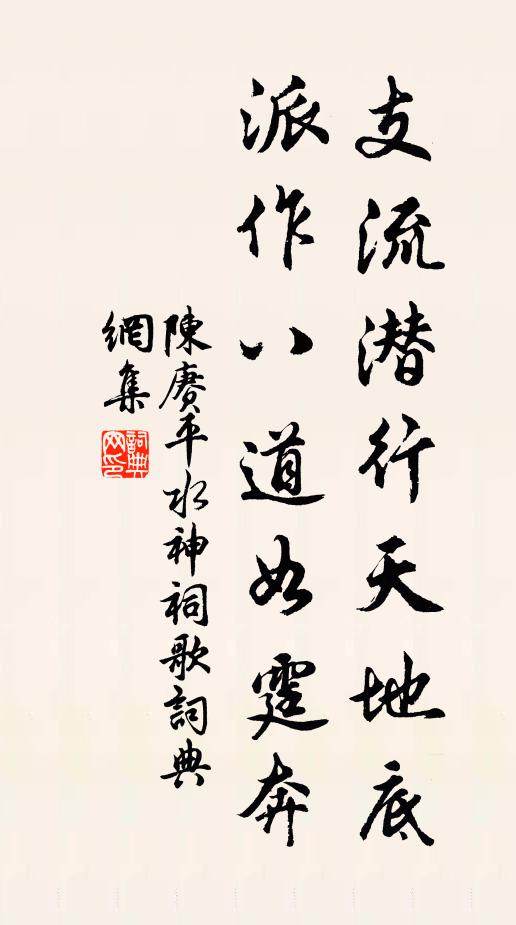 支流潜行天地底
派作八道如霆奔
陳賡平水神祠歌詞典
網集
詞典網印